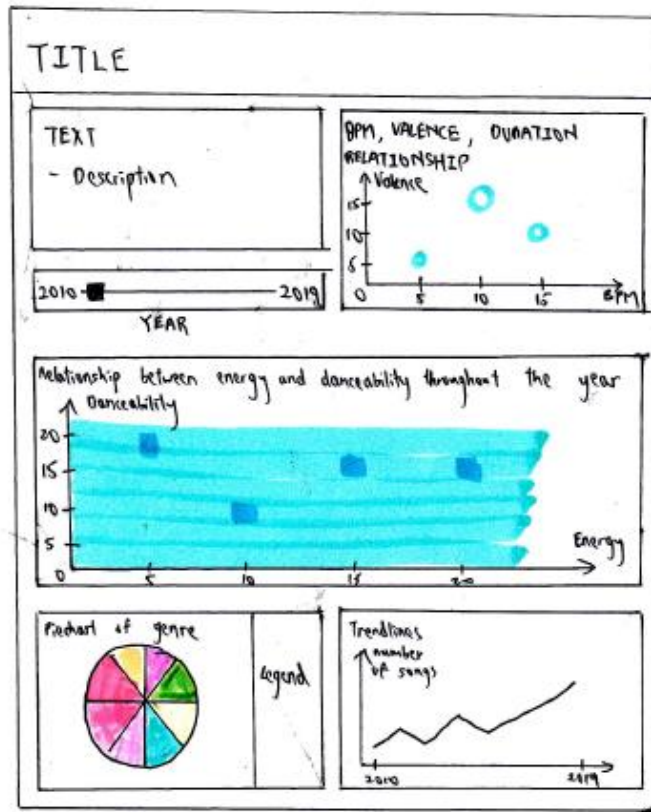 TITLE
TEXT
- Description
2010
2019
YEAR
BPM, VALENCE, DURATION
RELATIONSHIP
Valence
15
10
5
0
5
10
15
BPM
Relationship between energy and danceability throughout the year
Danceability
20
15
10
5
0
5
10
15
20
Energy
Piechart of genre
Legend
Trendlines
number
of songs
2010
2019